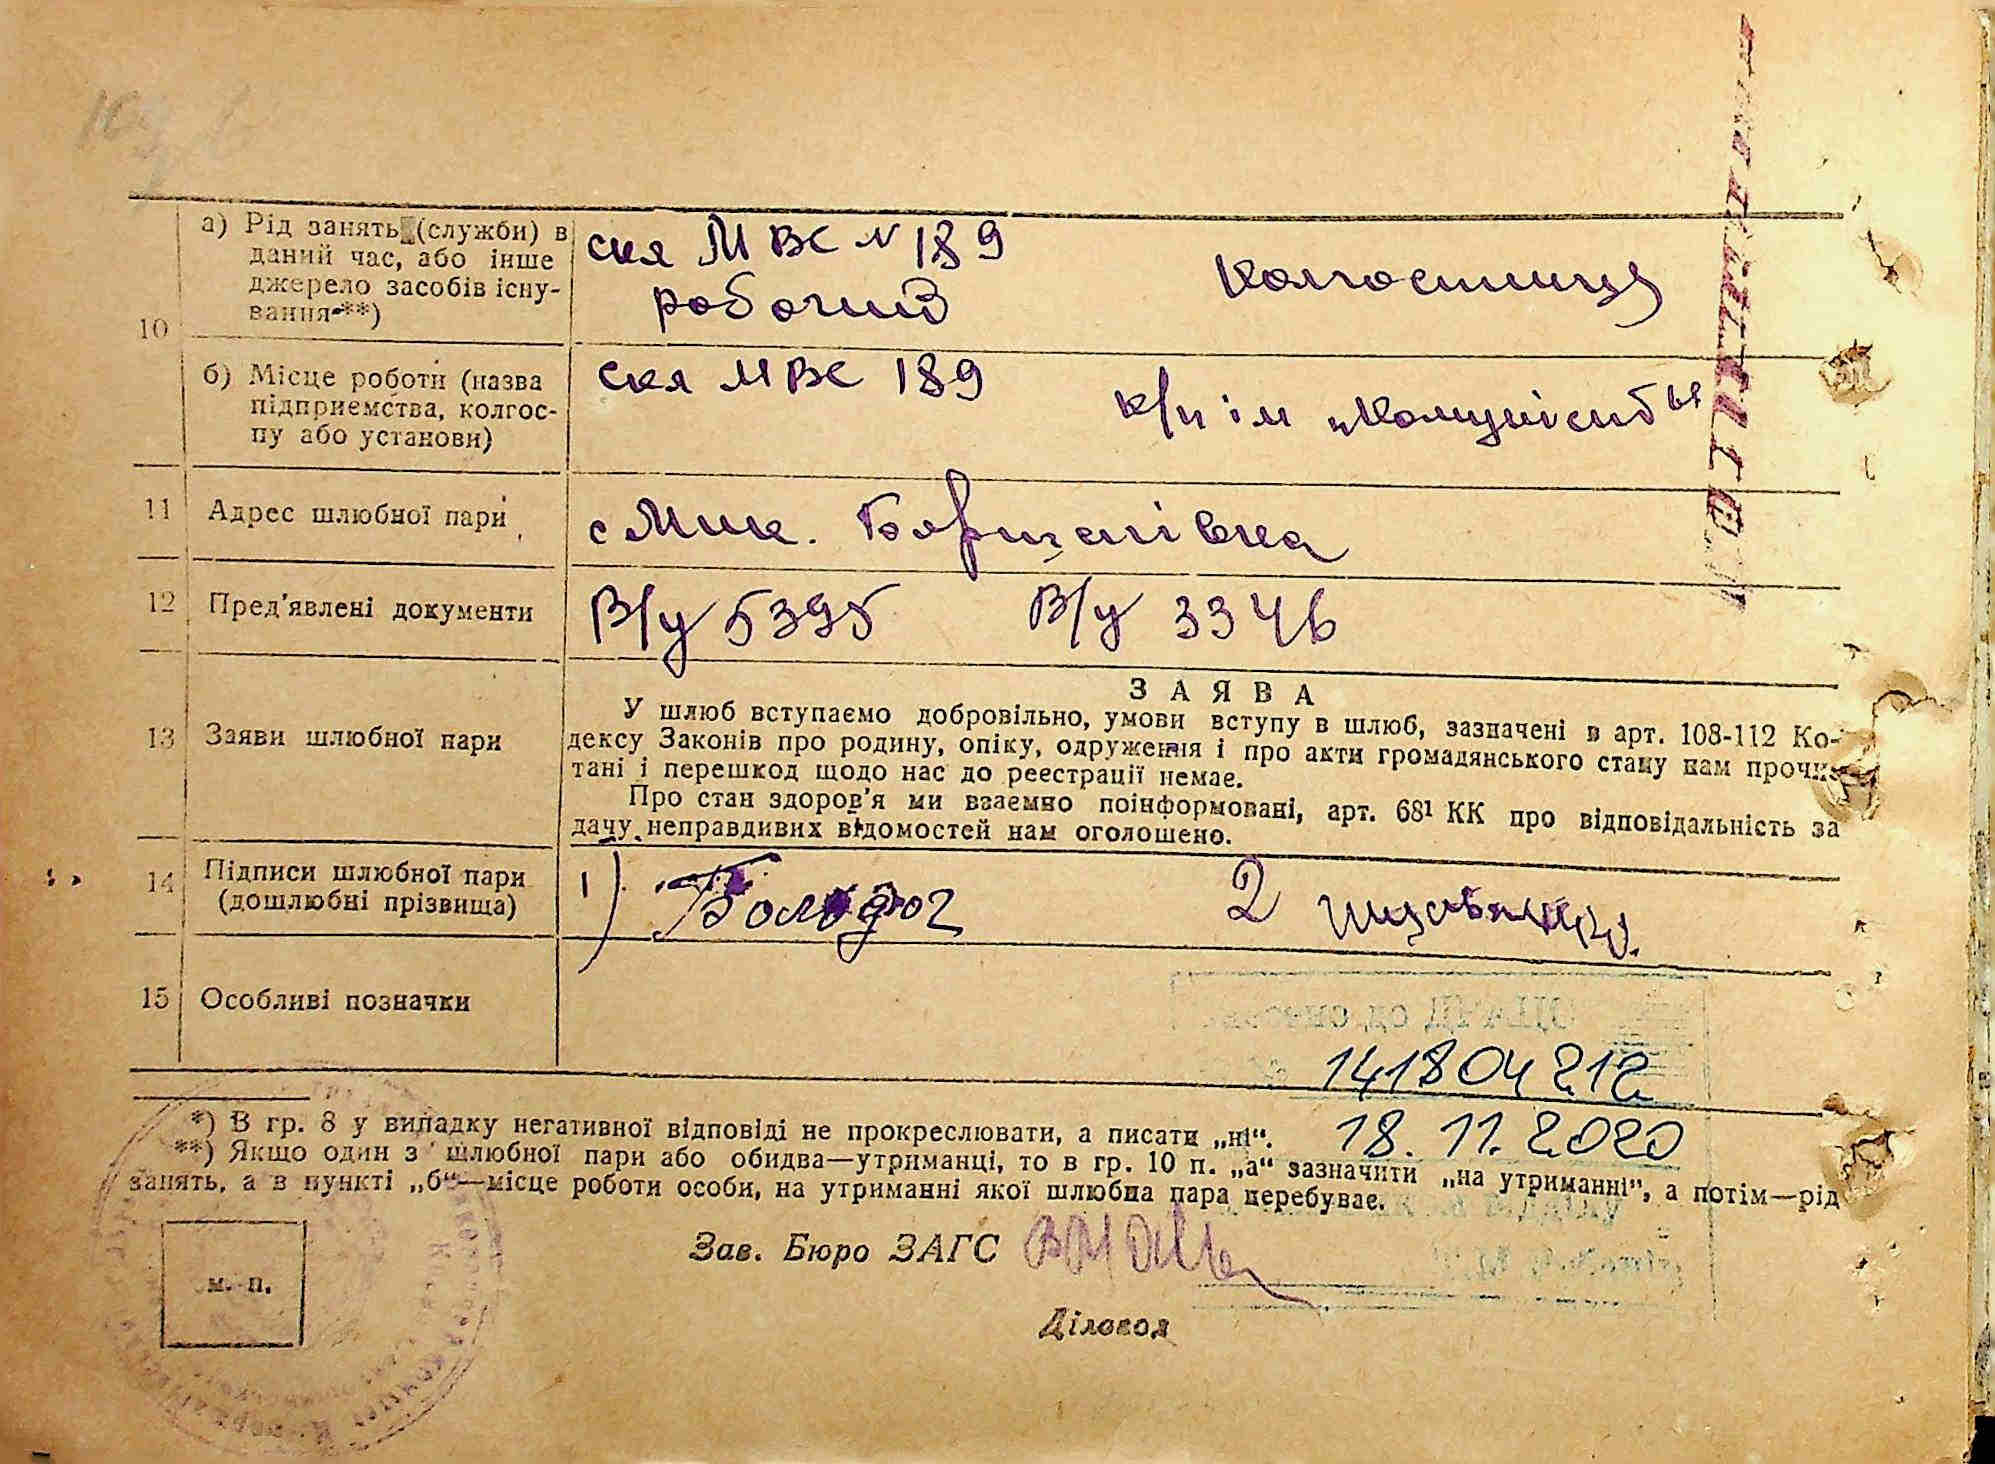 10
а) Рід занять (служби) в
даний час, або інше
джерело засобів існу-
вання**)
скя МВС N 189
робочий
Колгоспниця
б) Місце роботи (назва
підприємства, колгос-
пу або установи)
скя МВС 189
к/п ім „Комуніст
11 Адрес шлюбної пари
с Мик. Борщагівка
12 Пред'явлені документи
В/у 5395 В/у 3346
13 Заяви шлюбної пари
ЗАЯВА
У шлюб вступаємо добровільно, умови вступу в шлюб, зазначені в арт. 108-112 Ко-
дексу Законів про родину, опіку, одруження і про акти громадянського стану нам прочи-
тані і перешкод щодо нас до реестрації немає.
Про стан здоров'я ми взаємно поінформовані, арт. 68¹ КК про відповідальність за
дачу неправдивих відомостей нам оголошено.
14 Підписи шлюбної пари
(дошлюбні прізвища)
1) 2
15 Особливі позначки
141804212
18.11.2020
*) В гр. 8 у випадку негативної відповіді не прокреслювати, а писати „ні“.
**) Якщо один з шлюбної пари або обидва—утриманці, то в гр. 10 п. „а“ зазначити „на утриманні“, а потім—рід
занять, а в пункті „б“—місце роботи особи, на утриманні якої шлюбна пара перебуває.
Зав. Бюро ЗАГС
м. п.
Діловод